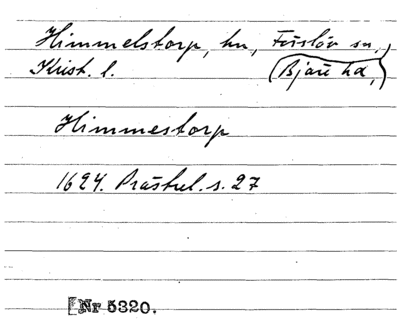 Himmelstorp, hn, Fŭslöv sn,
Krist. l. (Bjäre hd,)
Himmestorp
1624. Prästrel. s. 27
[Nr 5320.